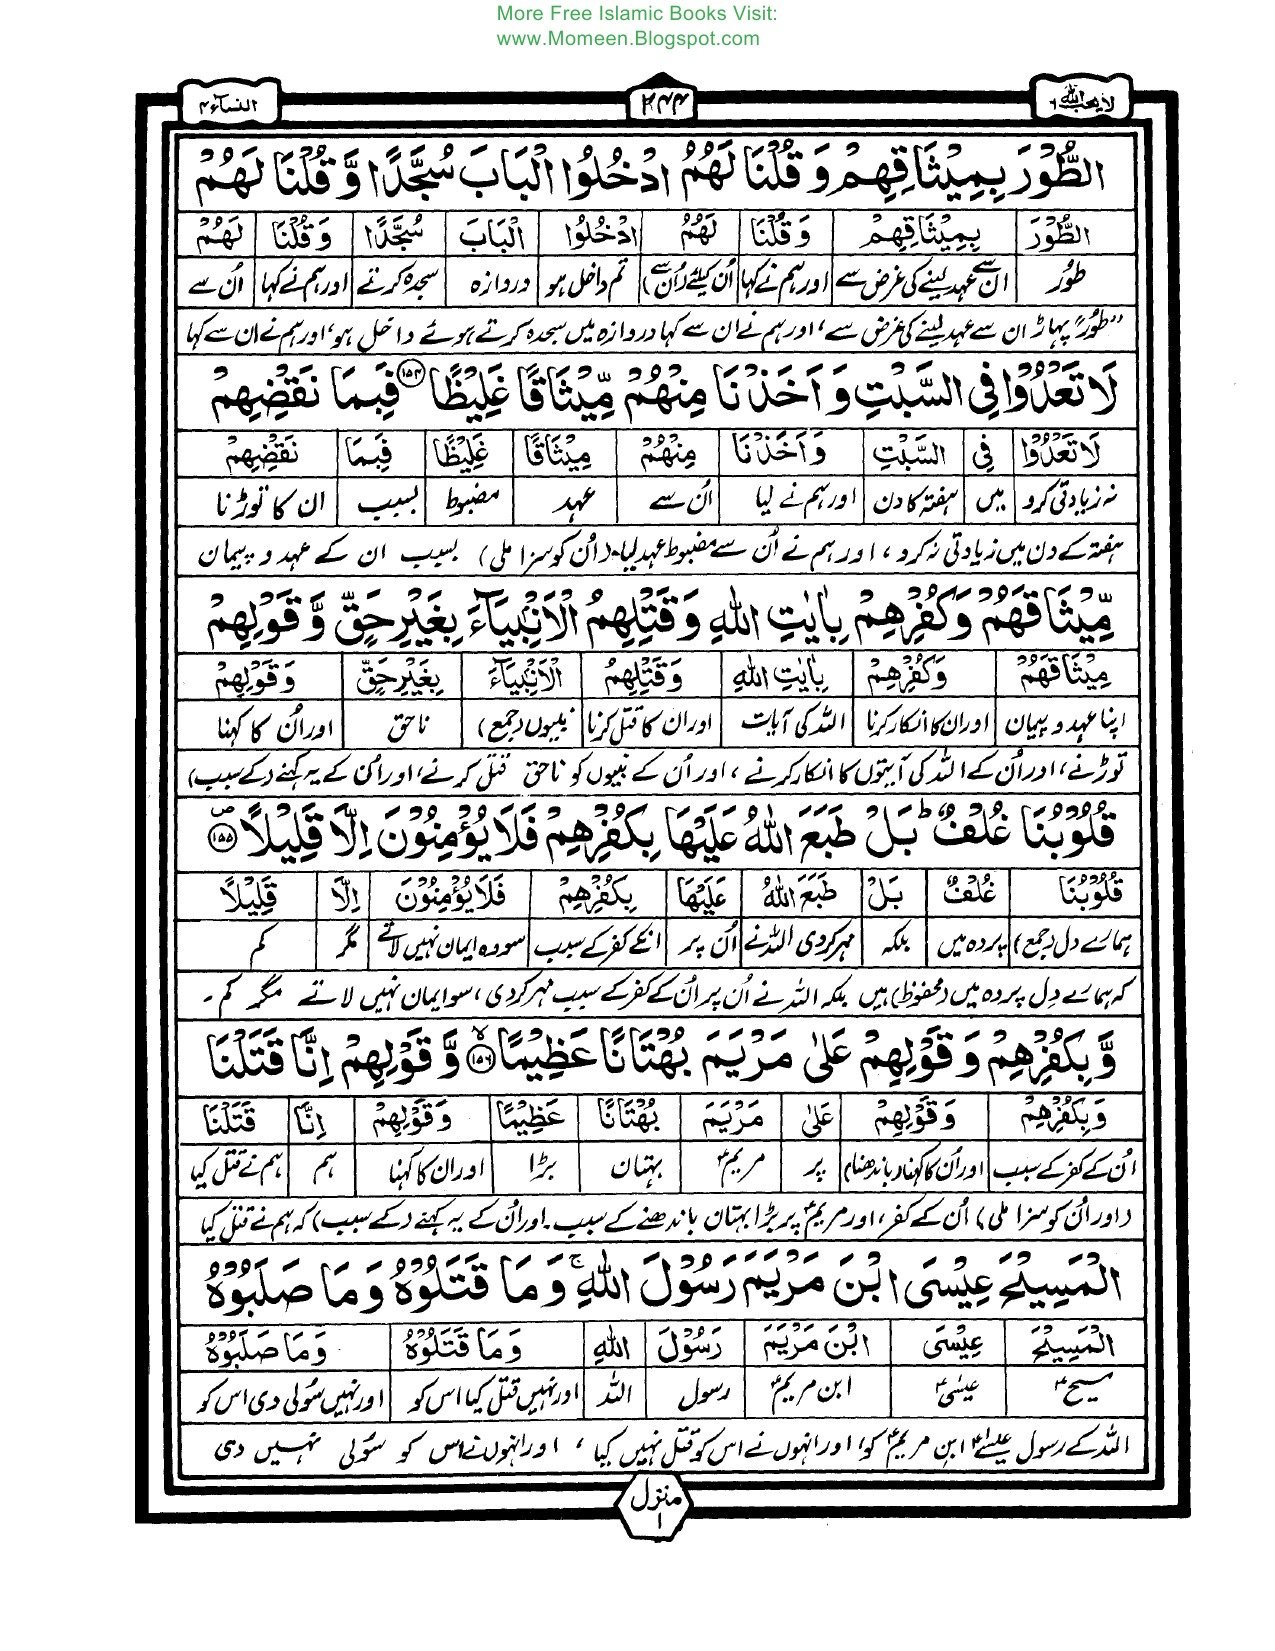 More Free Islamic Books Visit:
www.Momeen.Blogspot.com
لا يحب الله ٦
٢٤٤
النساء ٤
الطُّوْرَ بِمِيْثَاقِهِمْ وَ قُلْنَا لَهُمُ ادْخُلُوا الْبَابَ سُجَّدًا وَّ قُلْنَا لَهُمْ
الطُّوْرَ بِمِيْثَاقِهِمْ وَ قُلْنَا لَهُمُ ادْخُلُوا الْبَابَ سُجَّدًا وَ قُلْنَا لَهُمْ
طور ان سے عہد لینے کی غرض سے اور ہم نے کہا اُن کیلئے (اُن سے) تم داخل ہو دروازہ سجدہ کرتے اور ہم نے کہا اُن سے
”طور“ پہاڑ ان سے عہد لینے کی غرض سے، اور ہم نے ان سے کہا دروازہ میں سجدہ کرتے ہوئے داخل ہو، اور ہم نے ان سے کہا
لَا تَعْدُوْا فِي السَّبْتِ وَ اَخَذْنَا مِنْهُمْ مِّيْثَاقًا غَلِيْظًا ۝۱۵۴ فَبِمَا نَقْضِهِمْ
لَا تَعْدُوْا فِي السَّبْتِ وَ اَخَذْنَا مِنْهُمْ مِيْثَاقًا غَلِيْظًا فَبِمَا نَقْضِهِمْ
نہ زیادتی کرو میں ہفتہ کا دن اور ہم نے لیا اُن سے عہد مضبوط بسبب ان کا توڑنا
ہفتہ کے دن میں زیادتی نہ کرو، اور ہم نے اُن سے مضبوط عہد لیا۔ (اُن کو سزا ملی) بسبب ان کے عہد و پیمان
مِّيْثَاقَهُمْ وَ كُفْرِهِمْ بِاٰيٰتِ اللّٰهِ وَ قَتْلِهِمُ الْاَنْۢبِيَآءَ بِغَيْرِ حَقٍّ وَّ قَوْلِهِمْ
مِيْثَاقَهُمْ وَ كُفْرِهِمْ بِاٰيٰتِ اللّٰهِ وَ قَتْلِهِمُ الْاَنْۢبِيَآءَ بِغَيْرِ حَقٍّ وَ قَوْلِهِمْ
اپنا عہد و پیمان اور ان کا انکار کرنا اللہ کی آیات اور ان کا قتل کرنا نبیوں (جمع) ناحق اور اُن کا کہنا
توڑنے، اور اُن کے اللہ کی آیتوں کا انکار کرنے، اور اُن کے نبیوں کو ناحق قتل کرنے، اور اُن کے یہ کہنے (کے سبب)
قُلُوْبُنَا غُلْفٌ ؕ بَلْ طَبَعَ اللّٰهُ عَلَيْهَا بِكُفْرِهِمْ فَلَا يُؤْمِنُوْنَ اِلَّا قَلِيْلًا ۝۱۵۵
قُلُوْبُنَا غُلْفٌ بَلْ طَبَعَ اللّٰهُ عَلَيْهَا بِكُفْرِهِمْ فَلَا يُؤْمِنُوْنَ اِلَّا قَلِيْلًا
ہمارے دل (جمع) پردہ میں بلکہ مہر کردی اللہ نے اُن پر انکے کفر کے سبب سو وہ ایمان نہیں لاتے مگر کم
کہ ہمارے دل پردہ میں (محفوظ) ہیں بلکہ اللہ نے اُن پر اُن کے کفر کے سبب مہر کردی، سو ایمان نہیں لاتے مگر کم۔
وَّ بِكُفْرِهِمْ وَ قَوْلِهِمْ عَلٰى مَرْيَمَ بُهْتَانًا عَظِيْمًا ۝۱۵۶ وَّ قَوْلِهِمْ اِنَّا قَتَلْنَا
وَ بِكُفْرِهِمْ وَ قَوْلِهِمْ عَلٰى مَرْيَمَ بُهْتَانًا عَظِيْمًا وَ قَوْلِهِمْ اِنَّا قَتَلْنَا
اُن کے کفر کے سبب اور اُن کا کہنا (باندھنا) پر مریمؑ بہتان بڑا اور ان کا کہنا ہم ہم نے قتل کیا
(اور اُن کو سزا ملی) اُن کے کفر، اور مریمؑ پر بڑا بہتان باندھنے کے سبب۔ اور اُن کے یہ کہنے (کے سبب) کہ ہم نے قتل کیا
الْمَسِيْحَ عِيْسَى ابْنَ مَرْيَمَ رَسُوْلَ اللّٰهِ ۚ وَ مَا قَتَلُوْهُ وَ مَا صَلَبُوْهُ
الْمَسِيْحَ عِيْسَى ابْنَ مَرْيَمَ رَسُوْلَ اللّٰهِ وَ مَا قَتَلُوْهُ وَ مَا صَلَبُوْهُ
مسیحؑ عیسٰیؑ ابن مریمؑ رسول اللہ اور نہیں قتل کیا اس کو اور نہیں سُولی دی اس کو
اللہ کے رسول عیسٰیؑ ابن مریمؑ کو، اور انہوں نے اس کو قتل نہیں کیا، اور انہوں نے اس کو سُولی نہیں دی
منزل ۱